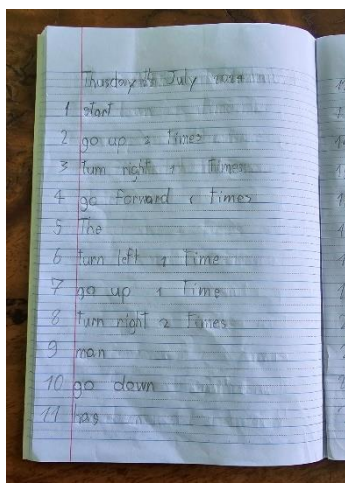 Thusday 4th July 2024
1 start
2 go up 2 times
3 turn right 1 times
4 go forward 1 times
5 The
6 turn left 1 time
7 go up 1 time
8 turn right 2 times
9 man
10 go down
11 has